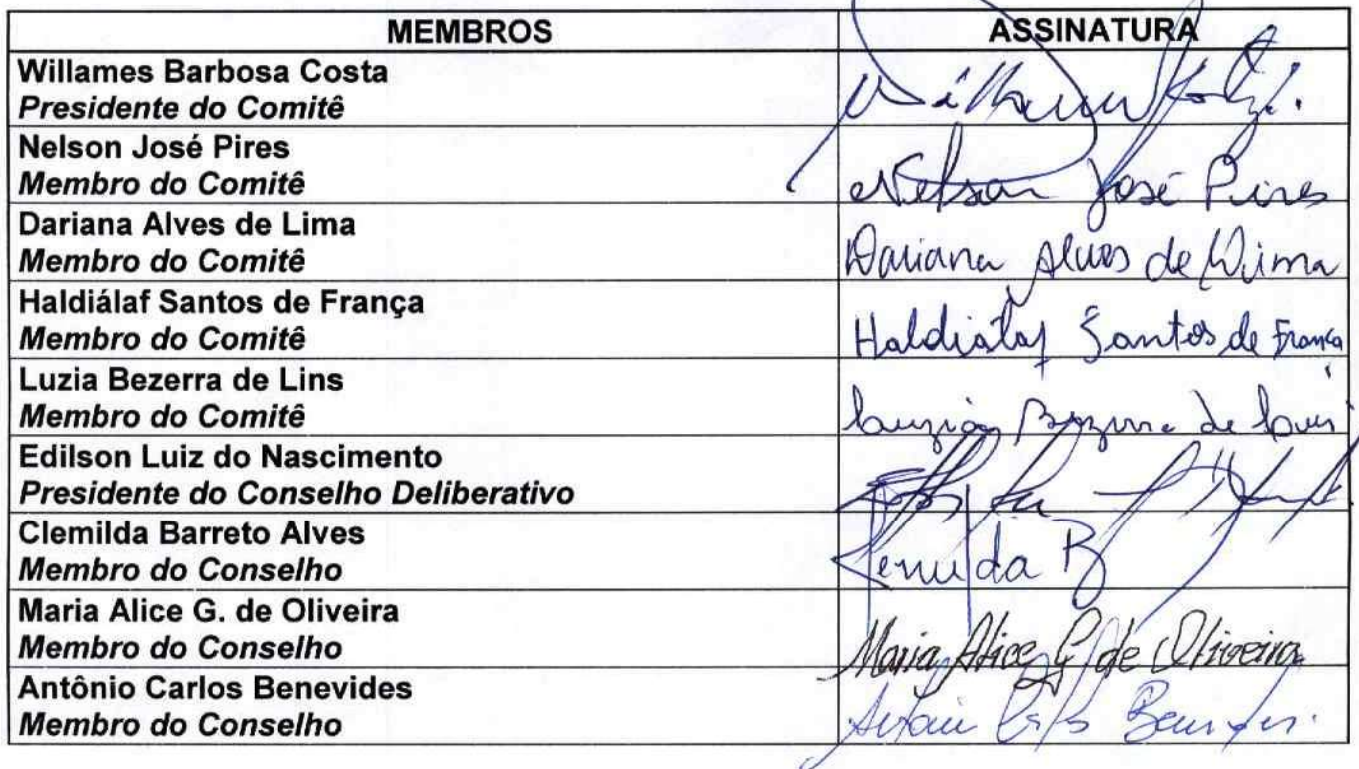 MEMBROS ASSINATURA
Willames Barbosa Costa
Presidente do Comitê
Nelson José Pires
Membro do Comitê Nelson José Pires
Dariana Alves de Lima
Membro do Comitê Dariana Alves de Lima
Haldiálaf Santos de França
Membro do Comitê Haldiálaf Santos de França
Luzia Bezerra de Lins
Membro do Comitê Luzia Bezerra de Lins
Edilson Luiz do Nascimento
Presidente do Conselho Deliberativo
Clemilda Barreto Alves
Membro do Conselho Clemilda B
Maria Alice G. de Oliveira
Membro do Conselho Maria Alice G de Oliveira
Antônio Carlos Benevides
Membro do Conselho